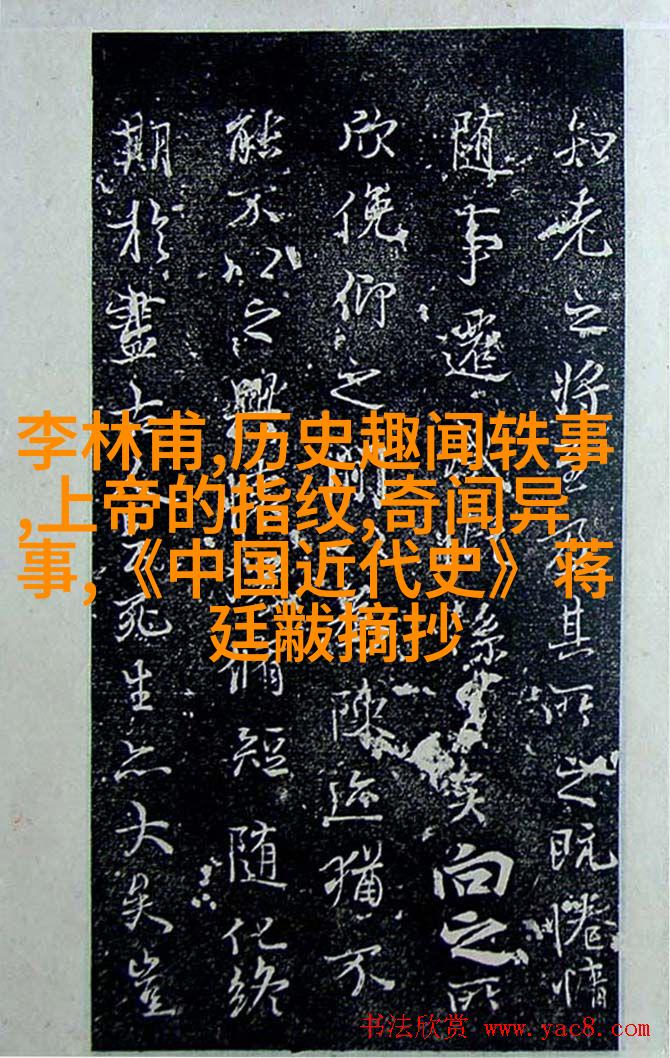 李林甫,历史趣闻轶事
,上帝的指纹,奇闻异
事,《中国近代史》蒋
廷黻摘抄
知老之將至其所之既惓情
随事遷係之矣向之所
欣俛仰之陳迹猶不
能不以之興脩短随化終
期於盡死生亦大矣豈
书法欣赏 www.yac8.com